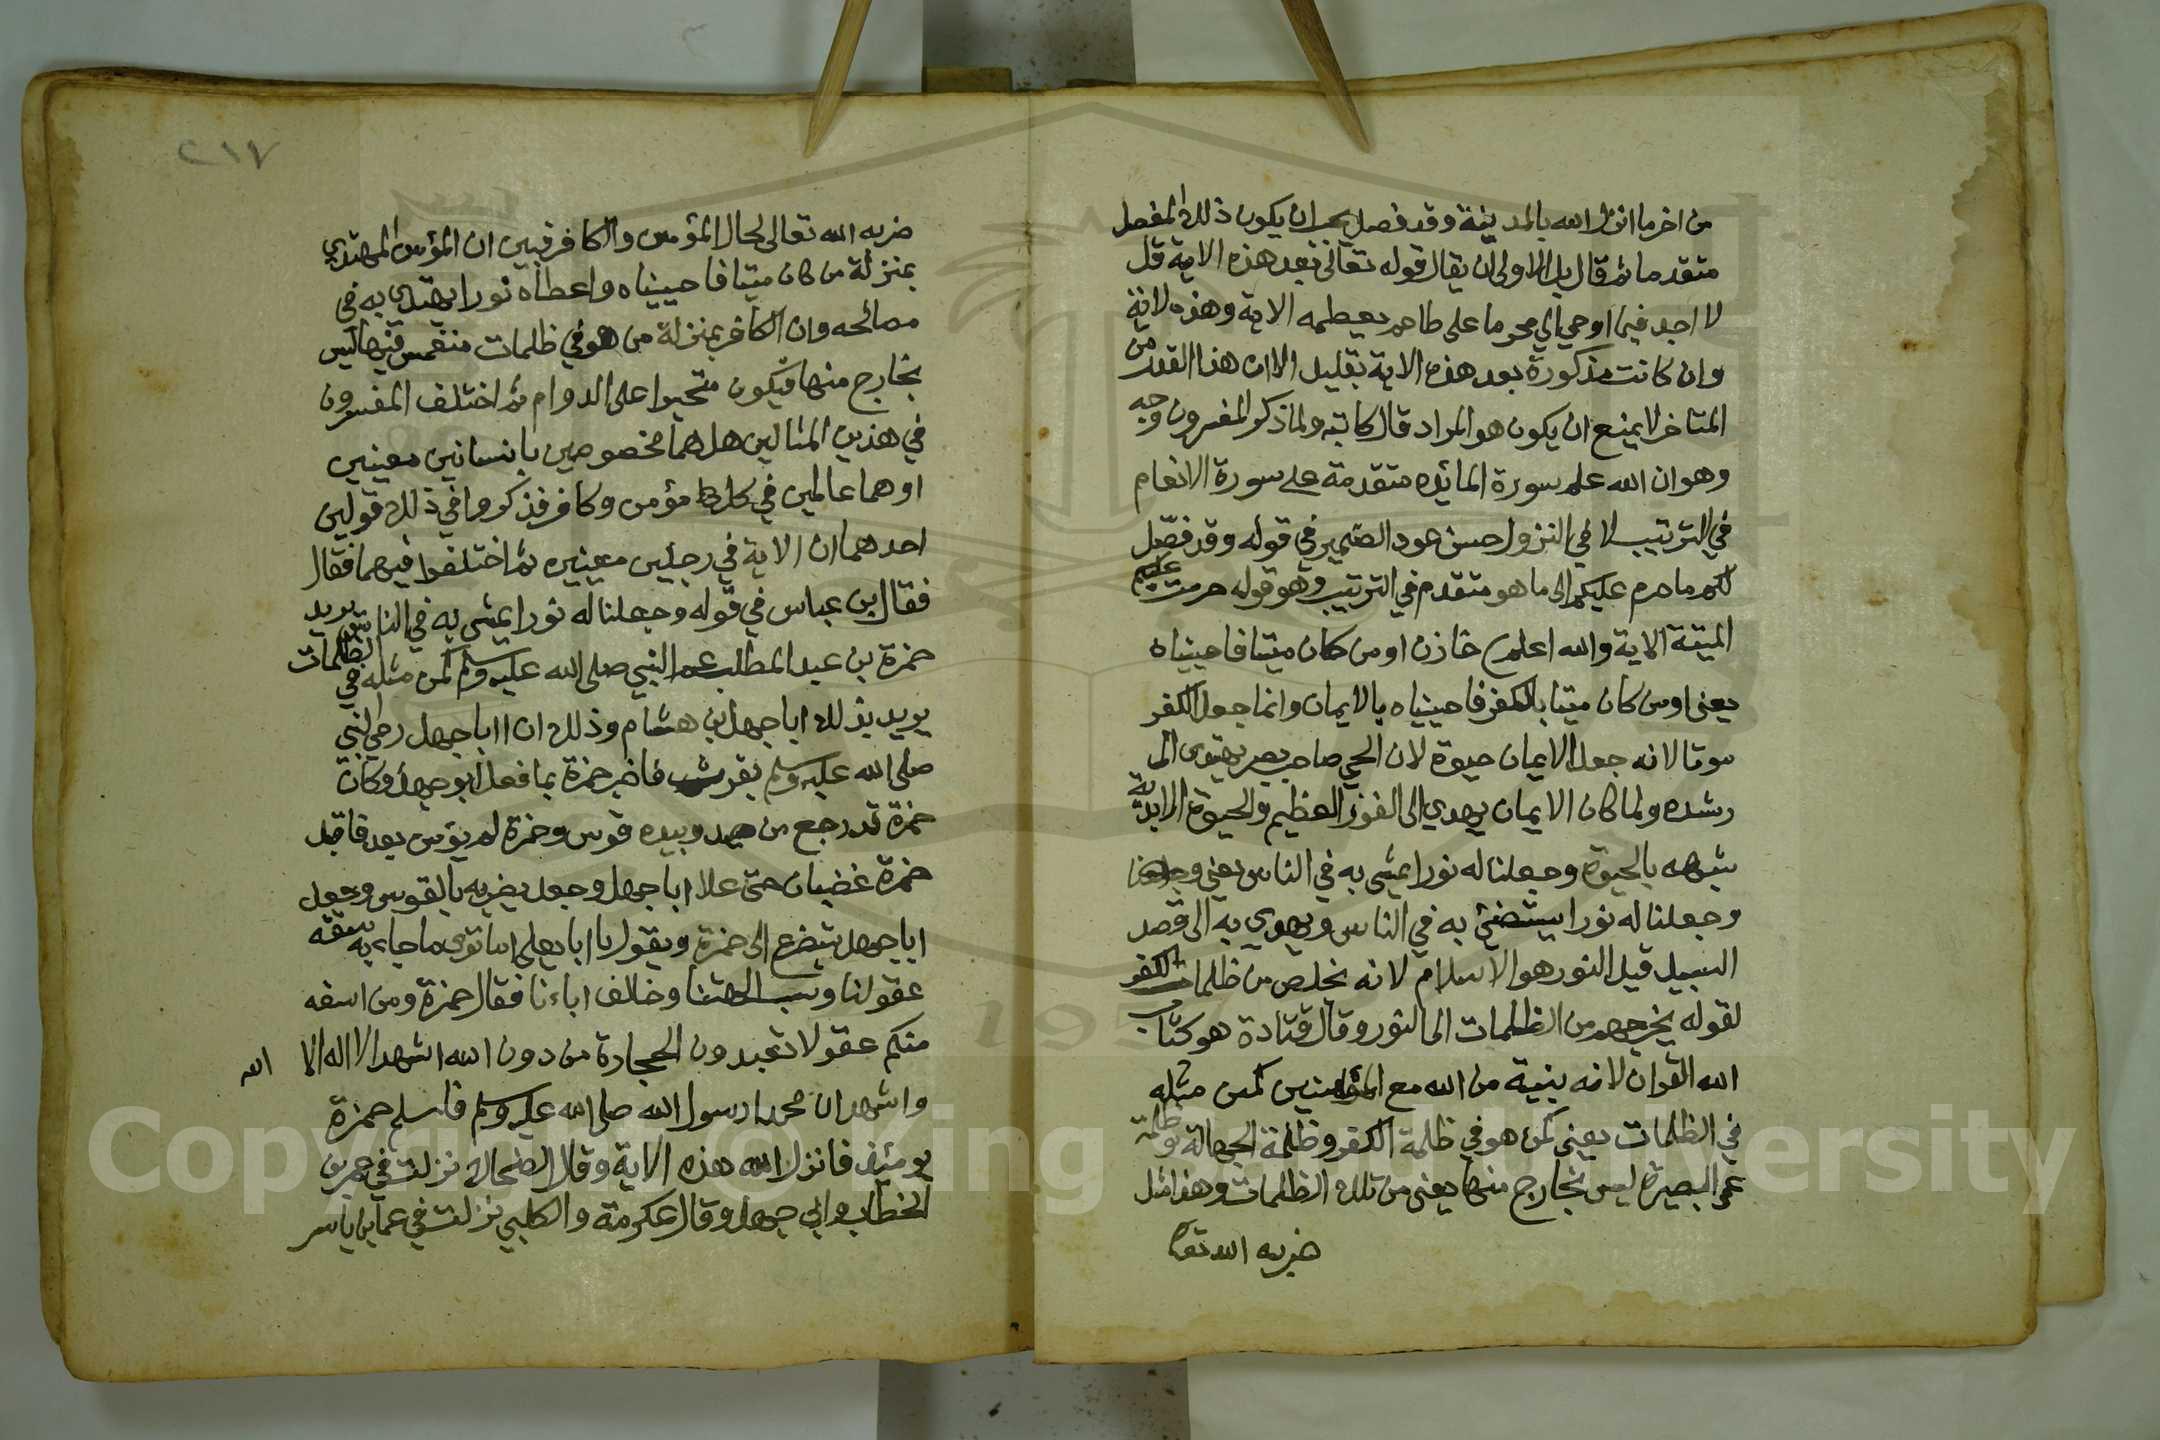 من اخر ما انزل الله بالمدينة وقد فصل يجب ان يكون ذلك المفصل
متقدما ثم قال بل الاولى ان يقال قوله تعالى بعد هذه الاية قل
لا اجد فيما اوحي الي محرما على طاعم يطعمه الاية وهذه الاية
وان كانت مذكورة بعد هذه الاية بقليل الا ان هذا القدر من
المتاخر لا يمنع ان يكون هو المراد قال كاتبه ولما ذكر المفسرون وجه
وهو ان الله علم سورة المائده متقدمة على سورة الانعام
في الترتيب لا في النزول حسن عود الضمير في قوله وقد فصّل
لكم ما حرم عليكم الى ما هو متقدم في الترتيب وهو قوله حرمت عليكم
الميتة الاية والله اعلم خازن او من كان ميتا فاحييناه
يعنى او من كان ميتا بالكفر فاحييناه بالايمان وانما جعل الكفر
موتا لانه جعل الايمان حيوة لان الحي صاحب بصر يهتدى الى
رشده ولما كان الايمان يهدي الى الفوز العظيم والحيوة الابدية
شبهه بالحيوة وجعلنا له نورا يمشي به في الناس يعني
وجعلنا له نورا يستضئ به في الناس ويهدي به الى قصد
السبيل قيل النور هو الاسلام لانه يخلص من ظلمات الكفر
لقوله يخرجهم من الظلمات الى النور وقال قتادة هو كتاب
الله القران لانه بينة من الله مع المؤمنين كمن مثله
في الظلمات يعني كمن هو في ظلمة الكفر وظلمة الجهالة وظلمة
عمى البصيرة ليس بخارج منها يعنى من تلك الظلمات وهذا مثل
ضربه الله تعالى
٢١٧
ضربه الله تعالى لحال المؤمن والكافر فبين ان المؤمن المهتدي
بمنزلة من كان ميتا فاحييناه واعطاه نورا يهتدي به في
مصالحه وان الكافر بمنزلة من هو في ظلمات منغمس فيها ليس
بخارج منها فيكون متحيرا على الدوام ثم اختلف المفسرون
في هذين المثالين هل هما مخصوصين بانسانين معينين
او هما عالمين في كل مؤمن وكافر فذكروا في ذلك قولين
احدهما ان الاية في رجلين معينين ثم اختلفوا فيهما فقال
فقال بن عباس في قوله وجعلنا له نورا يمشي به في الناس يريد
حمزة بن عبد المطلب عم النبي صلى الله عليه وسلم كمن مثله في الظلمات
يريد بذلك ابا جهل بن هشام وذلك ان ابا جهل رمى النبي
صلى الله عليه وسلم بفرث فاخبر حمزة بما فعل ابو جهل وكان
حمزة قد رجع من صيد وبيده قوس وحمزة لم يؤمن بعد فاقبل
حمزة غضبان حتى علا ابا جهل وجعل يضربه بالقوس وجعل
ابا جهل يتضرع الى حمزة ويقول يا ابا يعلى اما ترى ما جاء به سفه
عقولنا وسب الهتنا وخالف اباءنا فقال حمزة ومن اسفه
منكم عقولا تعبدون الحجارة من دون الله اشهد الا اله الا الله
واشهد ان محمدا رسول الله صلى الله عليه وسلم فاسلم حمزة
يومئذ فانزل الله هذه الاية وقال الضحاك نزلت في عمر بن
الخطاب وابي جهل وقال عكرمة والكلبي نزلت في عمار بن ياسر
Copyright © King Saud University